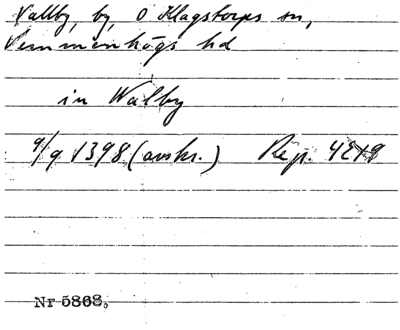 Vallby, by, Ö Klagstorps sn,
Vemmenhögs hd
in Walby
9/9 1398 (avskr.) Rep. 4219
Nr 5868.